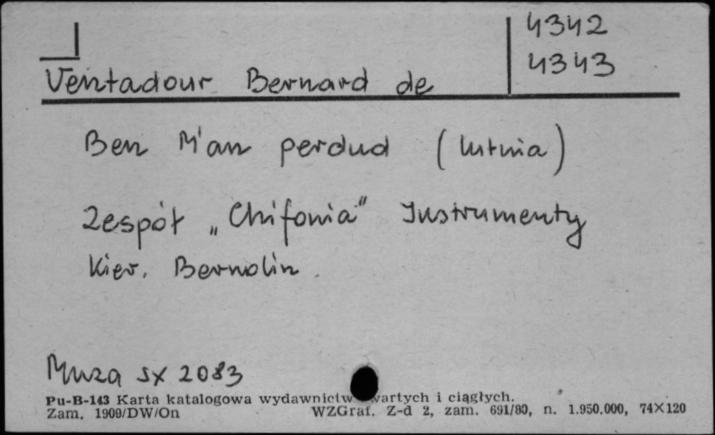 4342
4343
Ventadour Bernard de
Ben M'an perdud (lutnia)
Zespół „Chifonia" Instrumenty
Kier. Bernolin.
Muza sx 2083
Pu-B-143 Karta katalogowa wydawnictw zwartych i ciągłych.
Zam. 1909/DW/On WZGraf. Z-d 2, zam. 691/80, n. 1.950.000, 74×120